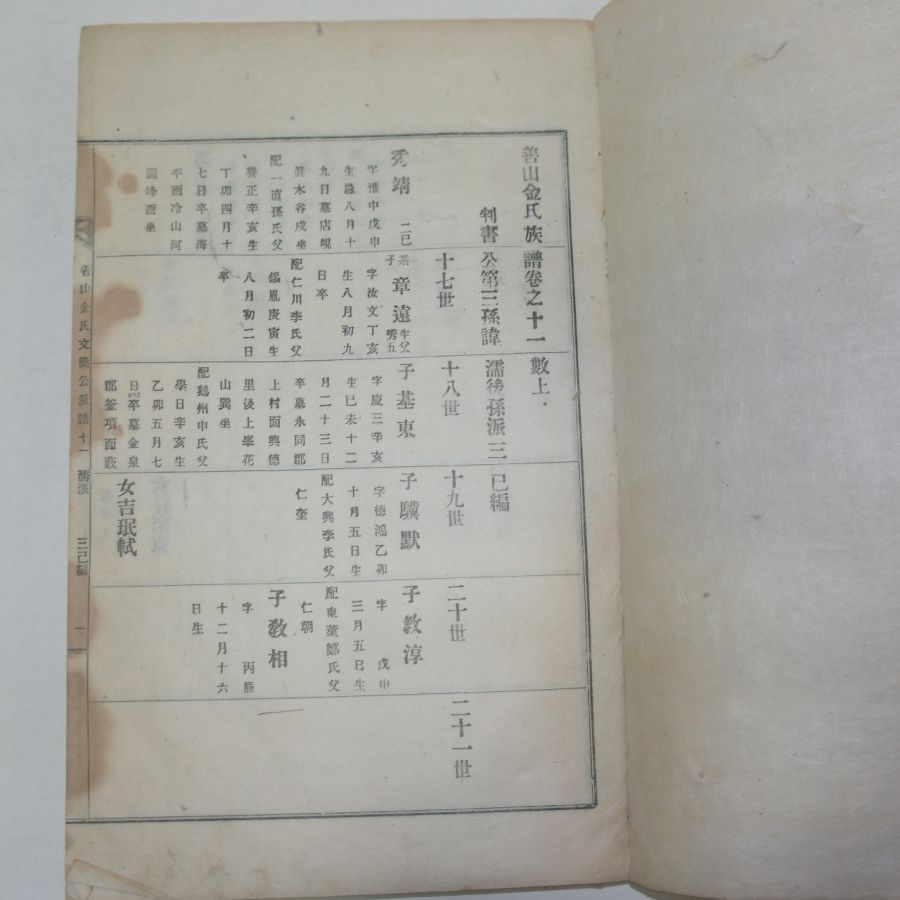 善山金氏族譜卷之十一 數上
判書公第三孫諱 濡後孫派三 已編
十七世
十八世
十九世
二十世
二十一世
秀靖 二已
字惟中戊申
生 八月十
九日墓店幌
眞木谷戌坐
配一直孫氏父
養正辛亥生
丁卯四月十
七日卒墓海
平面冷山河
圖峰酉坐
系子 章遠 生父秀五
字汝文丁亥
生八月初九
日卒
配仁川李氏父
錫胤庚寅生
八月初二日
卒
子基東
字慶三辛亥
生巳未十二
月二十三日
卒墓永同郡
上村面興德
里後上峯花
山巽坐
配鷄州申氏父
學日辛亥生
乙卯五月七
日卒墓金泉
郡釜項面
子驥默
字德鴻乙卯
十月五日生
配大興李氏父
仁奎
女吉珉軾
子敎淳
字 戊申
三月五日生
配東萊鄭氏父
仁朝
子敎相
字 丙辰
十二月十六
日生
善山金氏文簡公派譜十一 濡派 三已編 一